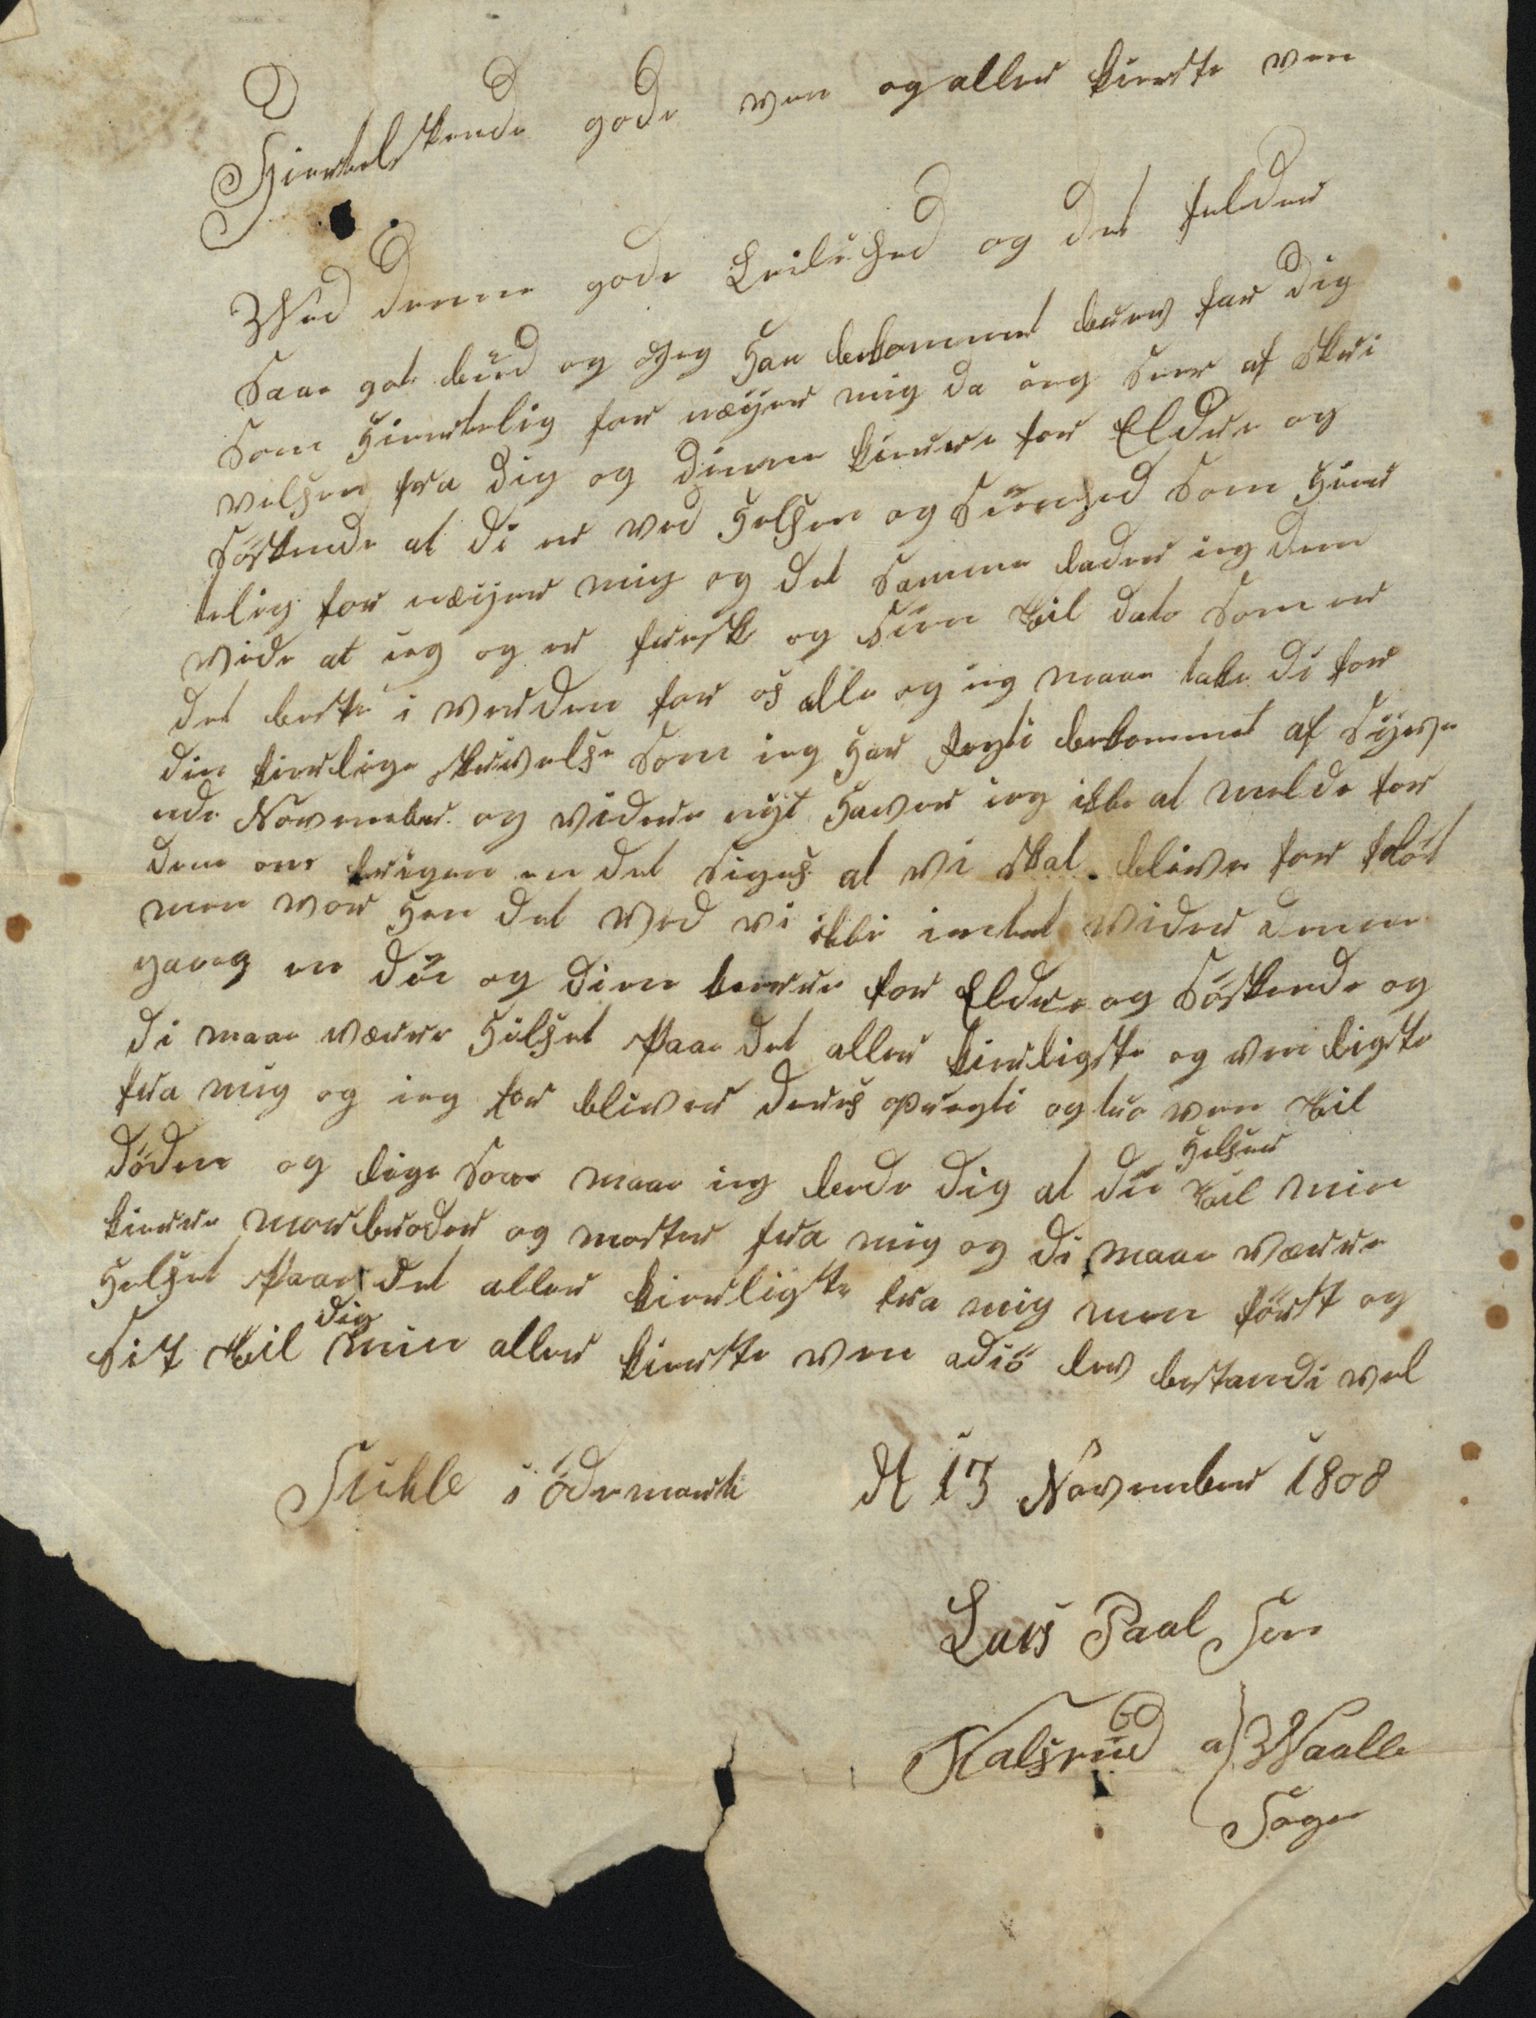 Hiertelskende gode ven og aller kierste ven
Wed denne gode Leilihed og det felder
Saa got bud og Jeg Har bekommet brev frar Dig
Som Hiertelig for nøyer mig da ieg Seer af Skri
velsen fra Dig og Dinne kierre for Eldre og
Söskende at Di er ved Helsen og Sünhed Som Hier
telig for nøyer mig og det Samme lader ieg dem
vide at ieg og er fresk og Sün til dato Som er
det beste i verden for os alle og ieg maae takke di for
din kierlige skrivelse Som ieg Har regti bekommet af Syve
nde November og videre nyt Haver ieg ikke at melde for
dem om krigen en det Siges at vi skal blive for fløt
men vor Hen det ved vi ikke intet vider denne
gang en dü og Dine kierre for Eldre og Söskende og
di maae være Hilset Paa det aller kierligste og venligste
fra mig og ieg for bliver deres oPregti og tro ven til
döden og lige Som maae ieg bede Dig at dü Helser til min
kierre morbroder og moster fra mig og di maae være
Helset Paa det aller kierligste fra mig men först og
Sist til dig min aller kierste ven adiö lev bestandi vel
Strhle i ödemark dt 13 November 1808
Lars Paal Sen
Kalsrud a Waalle
Sogn